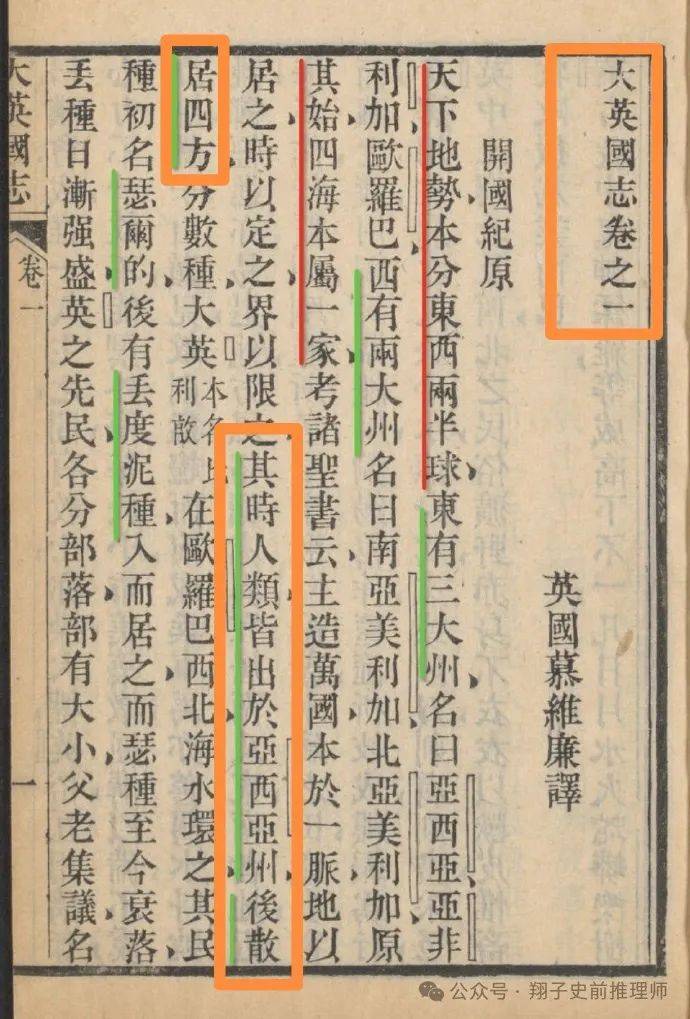 大英國志卷之一
英國慕維廉譯
開國紀原
天下地勢本分東西兩半球東有三大州名曰亞西亞亞非
利加歐羅巴西有兩大州名曰南亞美利加北亞美利加原
其始四海本屬一家考諸聖書云主造萬國本於一脈地以
居之時以定之界以限之其時人類皆出於亞西亞州後散
居四方分數種大英本名利在歐羅巴西北海水環之其民
種初名瑟爾的後有丢度泥種入而居之而瑟種至今衰落
丢種日漸强盛英之先民各分部落部有大小父老集議名
大英國志 卷一 一
公众号 · 翔子史前推理师